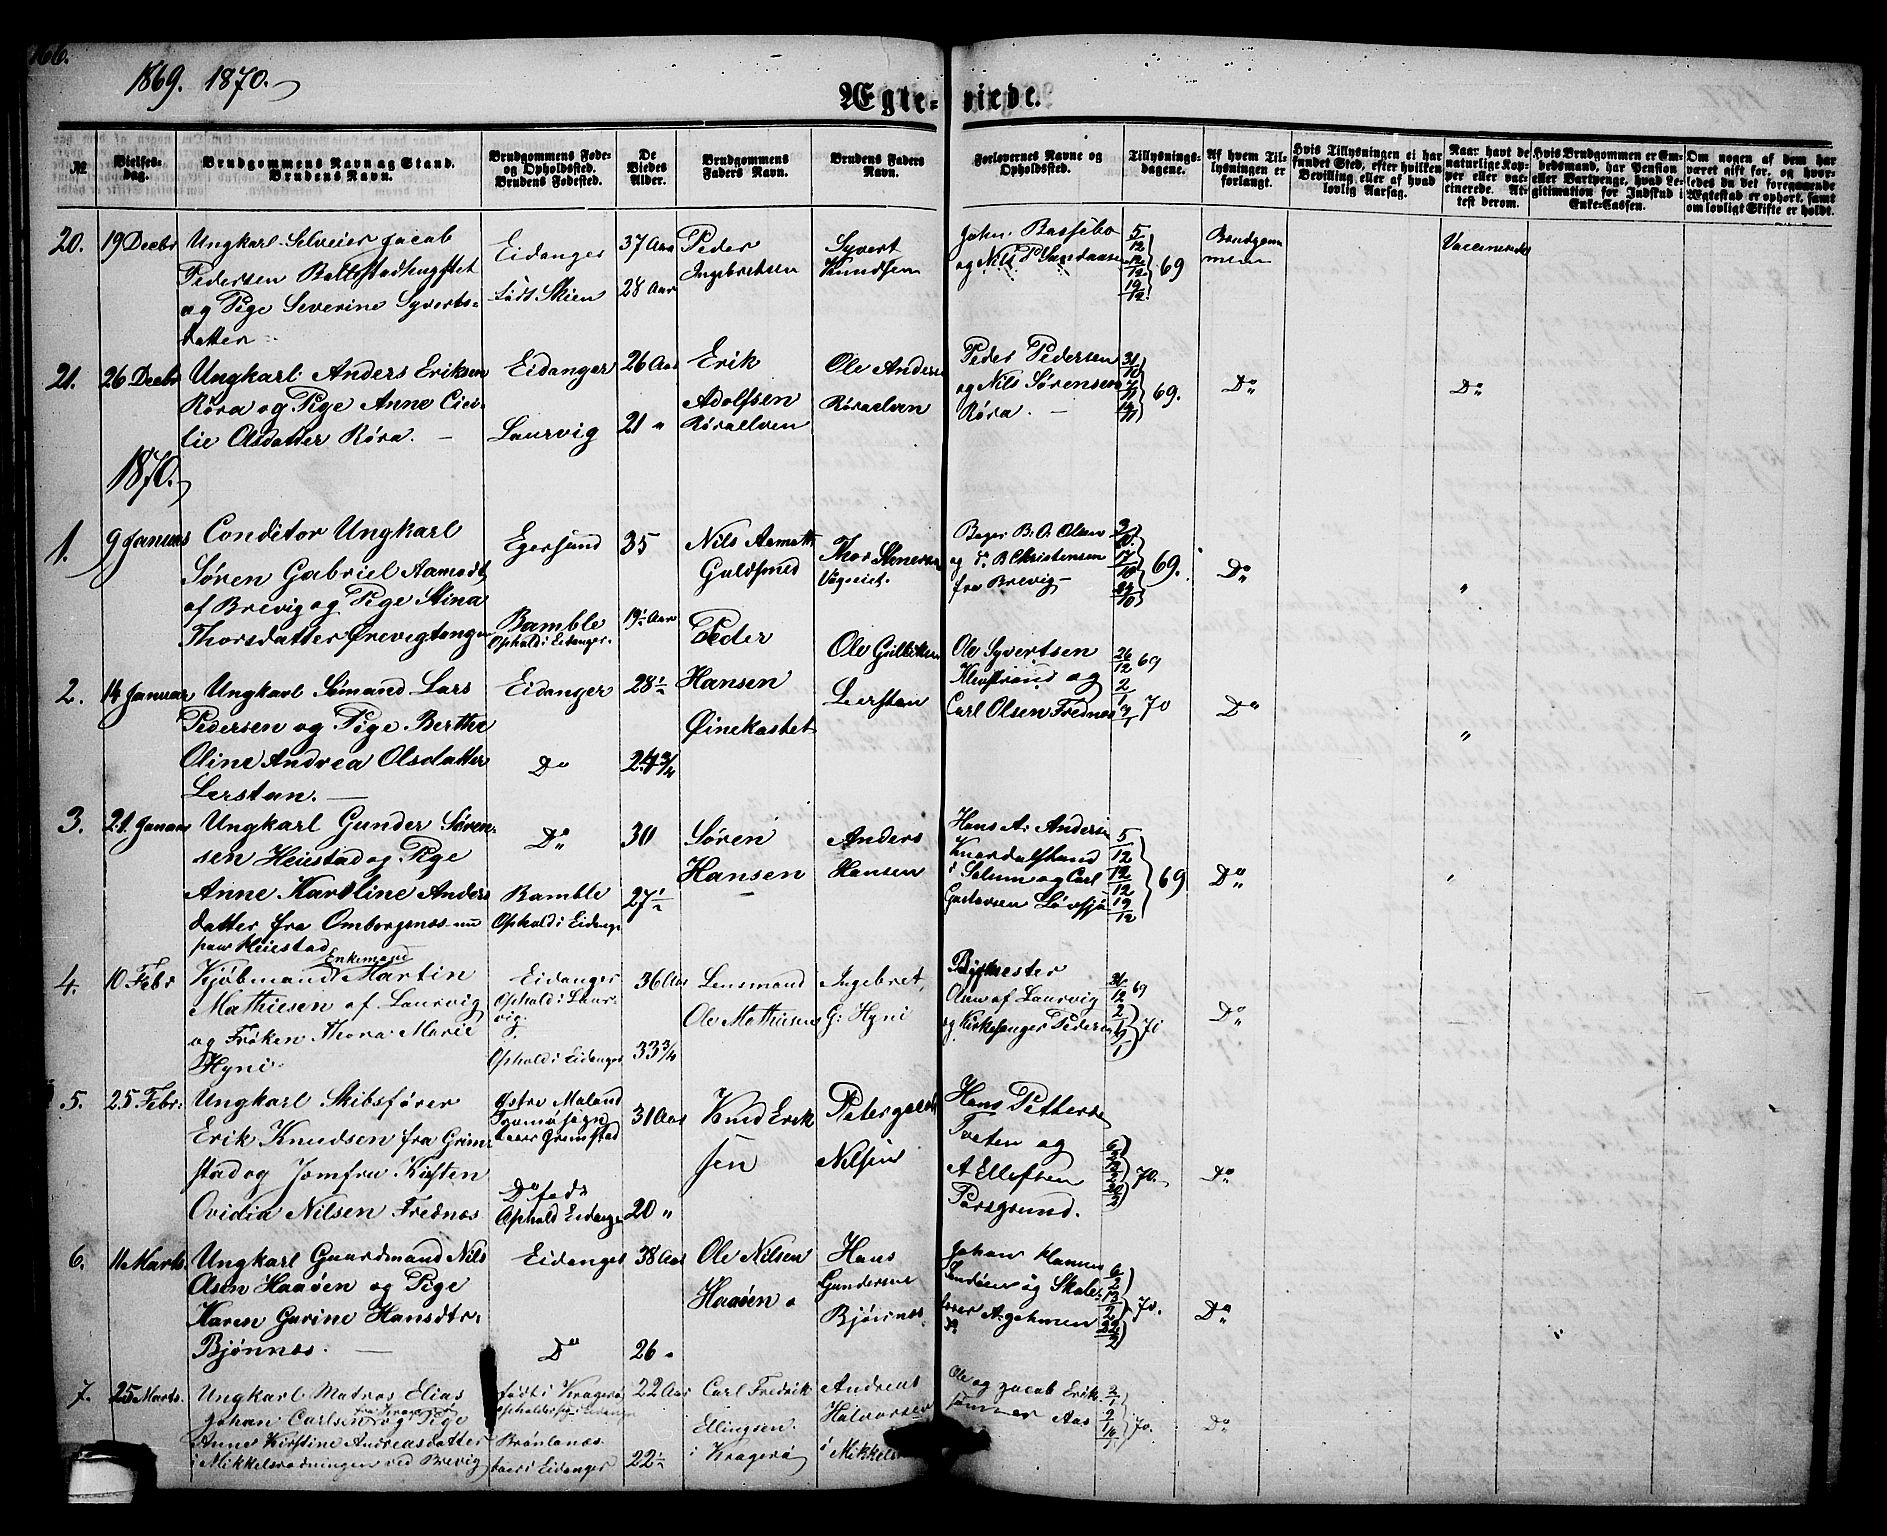 166.
1869. 1870.
Ægte-viede.
№
Vielses-dag.
Brudgommens Navn og Stand.
Brudens Navn.
Brudgommens Føde- og Opholdssted.
Brudens Fødested.
De Viedes Alder.
Brudgommens Faders Navn.
Brudens Faders Navn.
Forlovernes Navne og Opholdssted.
Tillysnings-dagene.
Af hvem Til-lysningen er forlangt.
Hvis Tillysningen ei har fundet Sted, efter hvilken Bevilling eller af hvad lovlig Aarsag.
Naar havt de naturlige Kop-per eller vac-cinerede. At-test derom.
Hvis Brudgommen er Em-bedsmand, har Pension eller Vartpenge, hvad Le-gitimation for Indskud i Enke-Cassen.
Om nogen af dem har været gift før, og hvor-ledes da det foregaaende Ægtestad er ophørt, samt om lovligt Skifte er holdt.
20. 19 Decbr Ungkarl Selveier Jacob
Pedersen
og Pige Severine Syverts-
datter
Eidanger
Født Skien
37 Aar
28 Aar
Peder
Ingebretsen
Syvert
Knudsen
John Bassebo
og Nils P.
5/12 12/12 19/12 69
Brudgom
men
Vaccinerede
21. 26 Decbr Ungkarl Anders Eriksen
Røra og Pige Anne Ceci-
lie Olsdatter Røra.
Eidanger
Laurvig
26 Aar
21 "
Erik
Adolfsen
Røraelven
Ole Anders
Røraelven
Peder Pedersen
og Nils Sørensen
Røra.
31/10 7/11 14/11 69.
Do
Do
1870.
1. 9 Januar Conditor Ungkarl
Søren Gabriel Aamodt
af Brevig og Pige Stina
Thorsdatter Ørevigtangen
Egersund
Bamble
Ophold i Eidanger.
35
19½ Aar
Nils Aamodt
Guldsmed
Thor
Bager B. O. Olsen
og B Christensen
fra Brevig
17/10 24/10 69.
Do
"
2. 14 Januar Ungkarl Sømand Lars
Pedersen og Pige Berthe
Oline Andrea Olsdatter
Lerstan.
Eidanger
Do
28½
24¾
Peder
Hansen
Øinekastet
Ole Gulliksen
Lerstan
Ole Syvertsen
Klevstrand og
Carl Olsen Frednæs
26/12 69
2/1 9/1 70
Do
"
3. 21. Januar Ungkarl Gunder Søren-
sen Heiestad og Pige
Anne Karoline Anders
datter fra Omborgsnæs nu
paa Heiestad
Do
Bamble
Ophold i Eidanger
30
27½
Søren
Hansen
Anders
Hansen
Hans A. Anders
Knardalstrand
i Solum og Carl
Gustavsen
5/12 12/12 19/12 69
Do
"
4. 10 Febr Kjøbmand Enkemand Martin
Mathiesen af Laurvig
og Frøken Thora Marie
Hyni
Eidanger
Ophold i Laur-
vig.
Ophold i Eidanger
36 Aar
33¾
Lensmand
Ole Mathiesen
Ingebret,
G. Hyni
Olsen af Laurvig
og Kirkesanger Pedersen
31/12 69
2/1 9/1 70
Do
5. 25 Febr: Ungkarl Skibsfører
Erik Knudsen fra Grim-
stad og Jomfru Kisten
Ovidia Nilsen Frednæs
Østre Moland
Grimstad
Do født
Ophold Eidanger
31 Aar
20 "
Knud Erik
sen
Peter
Nilsen
Hans Petterse
Tveten og
A Ellefsen
Porsgrund.
6/2 13/2 20/2 70.
Do
6. 11 Marts. Ungkarl Gaardmand Nils
Olsen Haaøen og Pige
Karen Gurine Hansdtr.
Bjønnæs.
Eidanger
Do
38 Aar
26 "
Ole Nilsen
Haaøen
Hans
Gundersen
Bjønnæs.
Johan Hansen
og Skole-
70.
Do
7. 25 Marts. Ungkarl Matros Elias
Johan Carlsen fra Kragerø og Pige
Anne Kirstine Andreasdatter
i Mikkelsrødningen ved Brevig
Født i Kragerø
Brunlanæs.
22 Aar
22½
Carl Fredrik
Ellingsen
i Kragerø
Andreas
Halvorsen
i Mikkels
Ole og Jacob Erik-
Aas
70.
Do